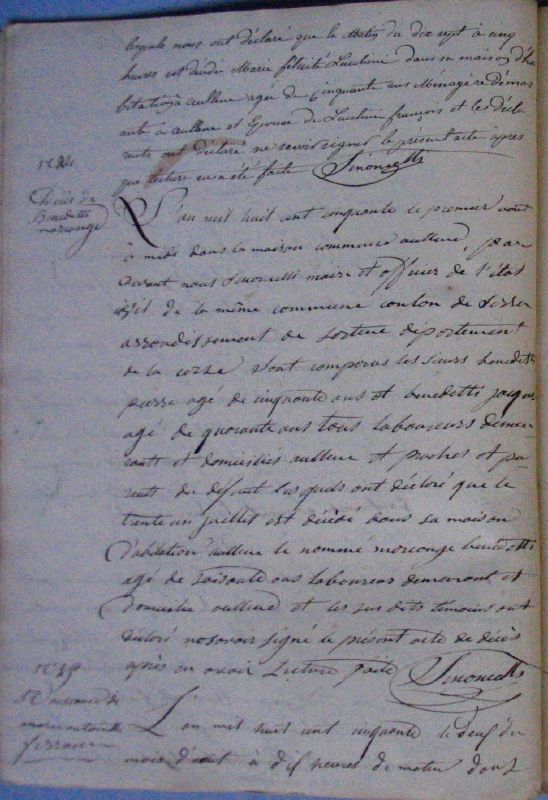 lesquels nous ont déclaré que le matin du dix sept à cinq
heures est décédé Marie félicité Lucchini dans sa maison d'ha
bitation à aullene agée de cinquante ans Ménagère démeu
rante à aullene et Epouse de Lucchini françois et les décla
rants ont déclaré ne savoir signer le présent acte apres
que lecture en a été faite Simonetti
Décès de
Benedetti
marcange
L'an mil huit cent cinquante le premier août
à midi dans la maison commune aullene, par
devant nous Simonetti maire et officier de l'état
civil de la même commune canton de Serra
arrondissement de Sartene département
de la corse Sont comparus les sieurs benedetti
pierre agé de cinquante ans et benedetti jacques
agé de quarante ans tous laboureurs demeu
rants et domiciliés aullene et proches et pa
rents du défunt lesquels ont déclaré que le
trente un juillet est décédé dans sa maison
d'abitation aullene le nommé marcange benedetti
agé de soisante ans laboureur demeurant et
domicilié aullene et les sus dits témoins ont
déclaré ne savoir signé le présent acte de décès
après en avoir Lecture faite Simonetti
Naissance de
marie antoinette
L'an mil huit cent cinquante le deuf du
mois d'août à dif heures de matin dont